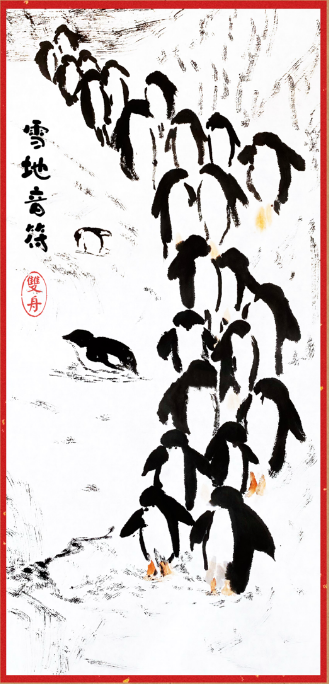 雪地音符
雙舟